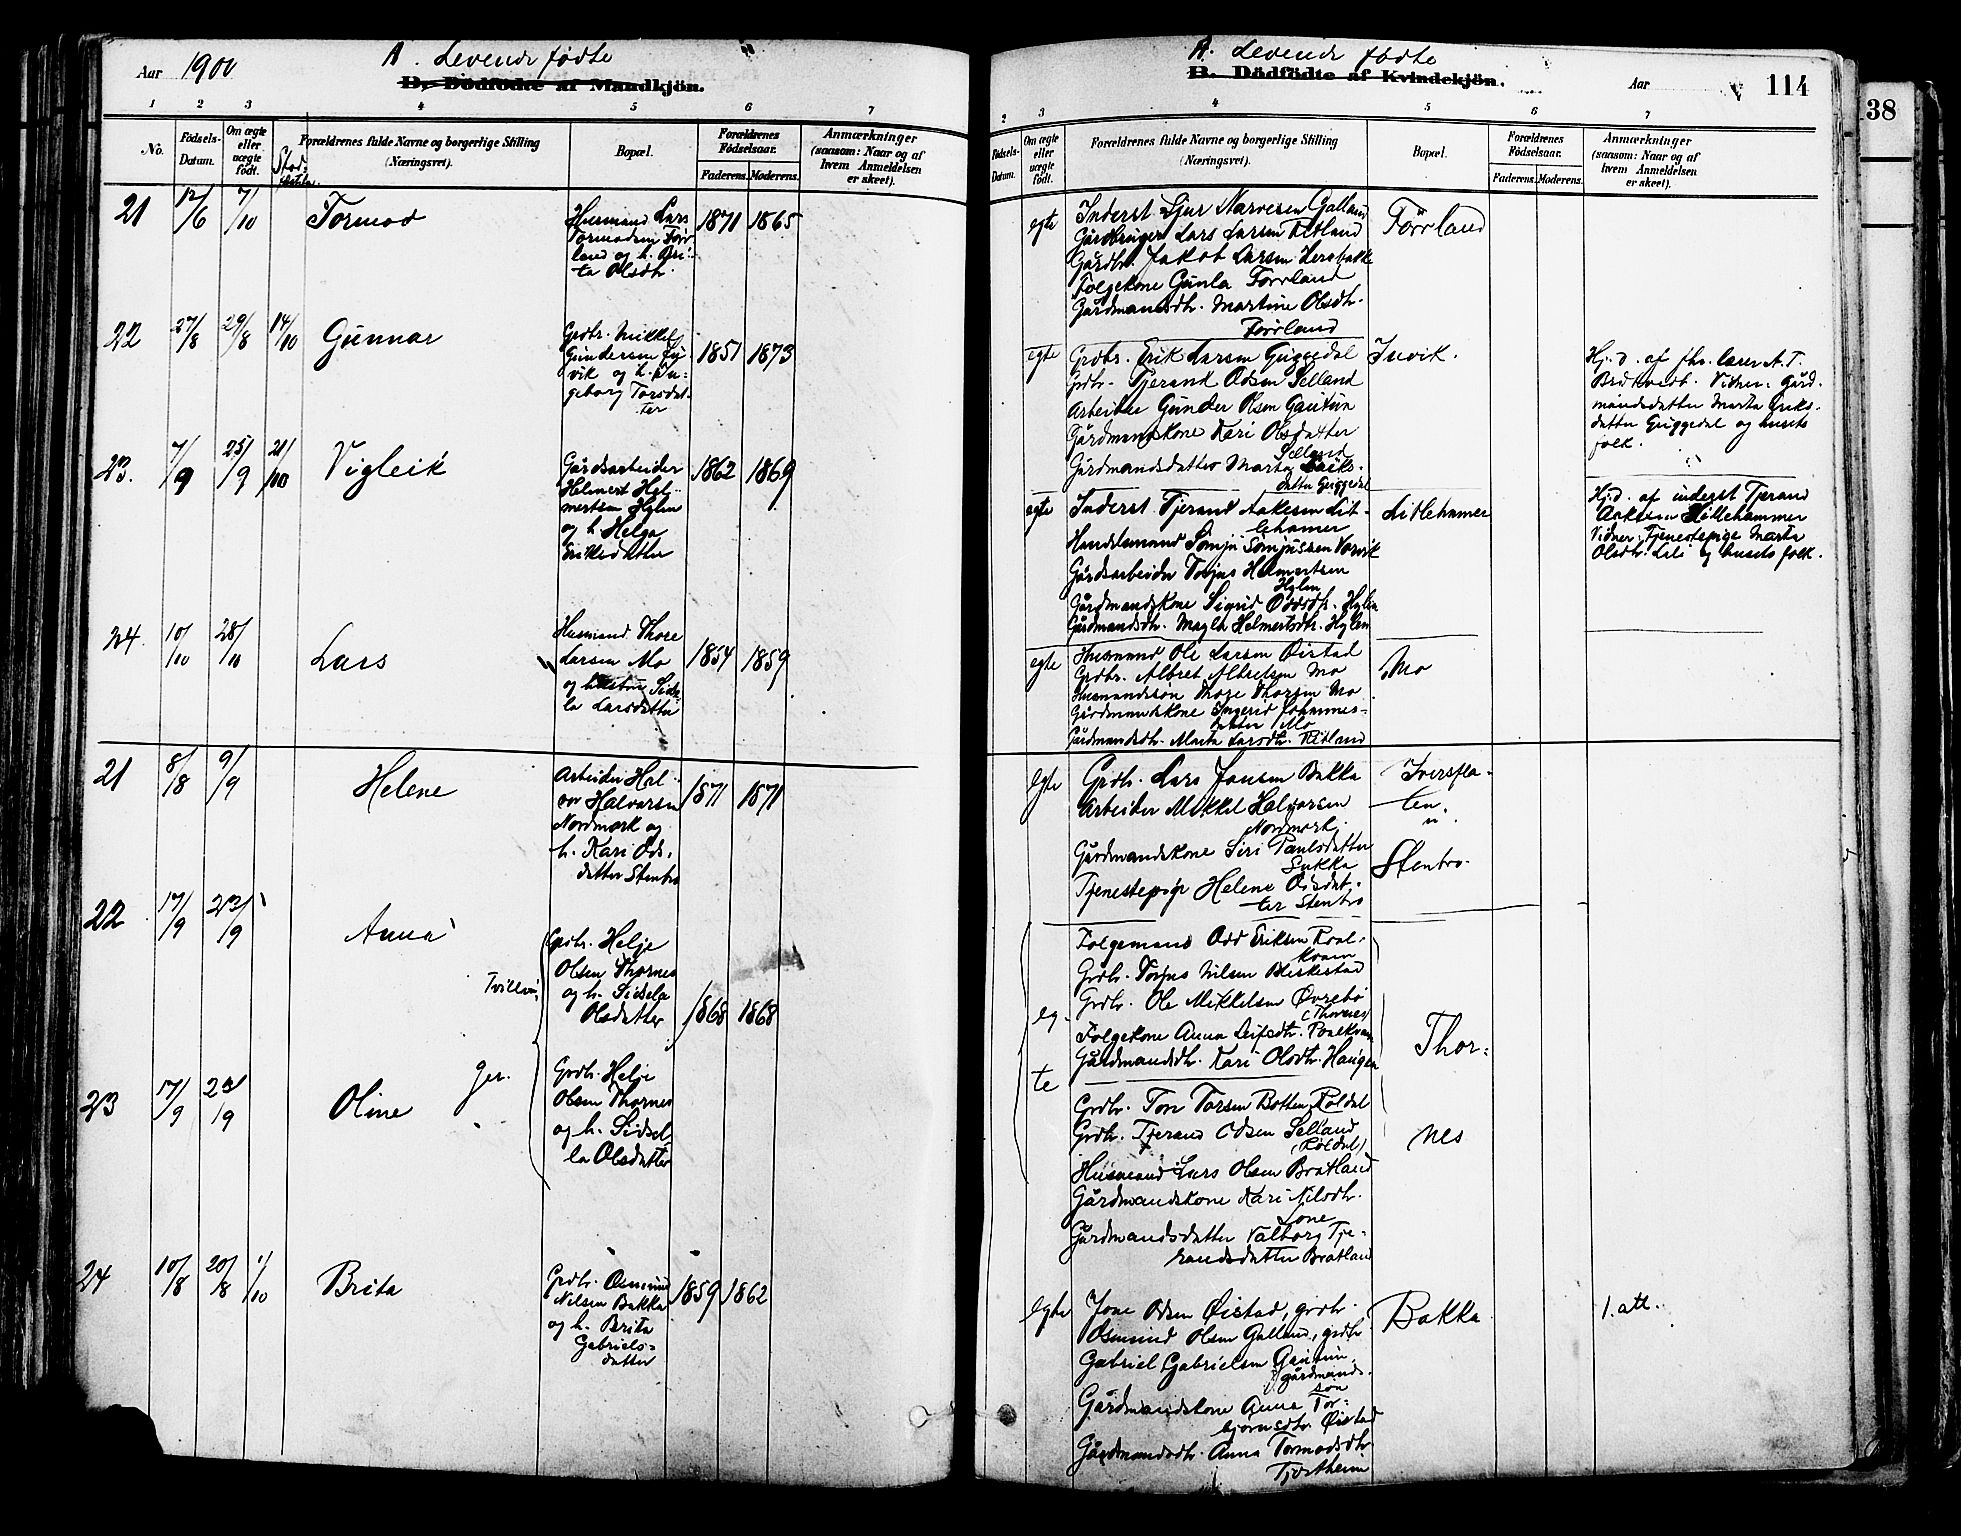 Aar 1900
A. Levende fødte
B. Dödfödte af Mandkjön.
1 2 3 4 5 6 7
No.
Födsels-
Datum.
Om ægte
eller
uægte
födt.
Forældrenes fulde Navne og borgerlige Stilling
(Næringsvei).
Bopæl.
Forældrenes
Födselsaar.
Faderens. Moderens.
Anmærkninger
(saasom: Naar og af
hvem Anmeldelsen
er skeet).
21 12/6 7/10 Tormod
Husmand Lars
Tormodsen Førr-
land og h. Bri-
ta Olsdtr.
1871 1865
22 27/8 29/8 14/10 Gunnar
Grdbr. Mikkel
Gundersen Ju-
vik og h. In-
geborg Torsdat-
ter
1851 1873
23. 7/9 25/9 21/10 Vigleik
Gårdsarbeider
Helmert Hel-
mertsen Hylen
og h. Helga
1862 1869
24. 10/10 28/10 Lars
Husmand Thore
Larsen Mo
og hustru Sids-
la Larsdatter
1854 1859
21 8/8 9/9 Helene
Arbeider Hal-
vor Halvorsen
Nordmork og
h. Kari Ods-
datter Stenbro
1871 1871
22 17/9 23/9 Anna
Grdbr. Helje
Olsen Thornes
og h. Sidsela
Olsdatter
1868 1868
23 17/9 23/9 Oline
Grdbr. Helje
Olsen Thornes
og h. Sidsel-
la Olsdatter
24 10/8 20/8 1/10 Brita
Grdbr. Osmund
Nilsen Bakka
og h. Brita
Gabriels-
datter
1859 1862
A. Levende fødte
B. Dödfödte af Kvindekjön.
Aar 114
38
2 3 4 5 6 7
Födsels-
Datum.
Om ægte
eller
uægte
födt.
Forældrenes fulde Navne og borgerlige Stilling
(Næringsvei).
Bopæl.
Forældrenes
Födselsaar.
Faderens. Moderens.
Anmærkninger
(saasom: Naar og af
hvem Anmeldelsen
er skeet).
egte Inderst Sjur Narvesen Galland Förrland
Gårdbruger Lars Larsen
Gårdbr. Jakob Larsen
Folgekone Gunla Førrland
Gårdmandsdtr. Martine Olsdtr.
Førrland
egte Grdbr. Erik Larsen Guggedal Juvik.
Grdbr. Tjerand Odsen Selland
Arbeider Gunder Olsen Gautun
Gårdmandskone Kari Olsdatter
Selland
Gårdmandsdatter Marta Eriks-
datter Guggedal
Hj.d. af fhv. lærer A. T.
Bråtvedt. Vidner: Gård-
mandsdatter Marta Eriks-
datter Guggedal og husets
folk.
egte Inderst Tjerand Aakesen Lit- Litlehamer
lehamer
Handelsmand Sömju Sömjussen Varvik
Gårdsarbeider Torjus Helmertsen
Hylen
Gårdmandskone Sigrid Odsdtr. Hylen
Gårdmandsdtr. Magla Helmertsdtr. Hylen
Hj.d. af inderst Tjerand
Aakesen Litlehammer
Vidner: Tjenestepige Marta
Olsdtr. Lali og husets folk.
egte Husmand Ole Larsen Øistad Mo
Grdbr. Albret Albretsen Mo
Husmandssøn Thore Thorsen Mo
Gårdmandskone Ingerid Johannes-
datter Mo
Gårdmandsdtr. Marta Larsdtr.
egte Grdbr. Lars Jonsen Bakka Iversfla-
Arbeider Mikkel Halvorsen ten.
Nordmork.
Gårdmandskone Siri Paulsdatter Stenbro.
Tjenestepige Helene Odsdat-
ter Stenbro
Folgemand Odd Eriksen Roal-
kvam
Grdbr. Torjus Nilsen Bleskestad
Grdbr. Ole Mikkelsen Øvrebø
(Thornes)
eg- Folgekone Anna Leifsdtr. Roalkvam Thor-
Gårdmandsdtr. Kari Olsdtr. Haugen
te
Grdbr. Tore Torsen Botten Röldal
Grdbr. Tjerand Odsen Selland nes
(Röldal)
Husmand Lars Olsen Bratland
Gårdmandskone Kari Nilsdtr.
Lone
Gårdmandsdatter Valborg Tje-
randsdatter Bratland
egte Jone Odsen Øistad, grdbr. Bakka 1. att.
Osmund Olsen Galland, grdbr
Gabriel Gabrielsen Gautun
gårdmands-
søn
Gårdmandskone Anna Tor-
bjornsdtr. Øistad
Gårdmandsdtr. Anna Tormodsdtr
Tjostheim